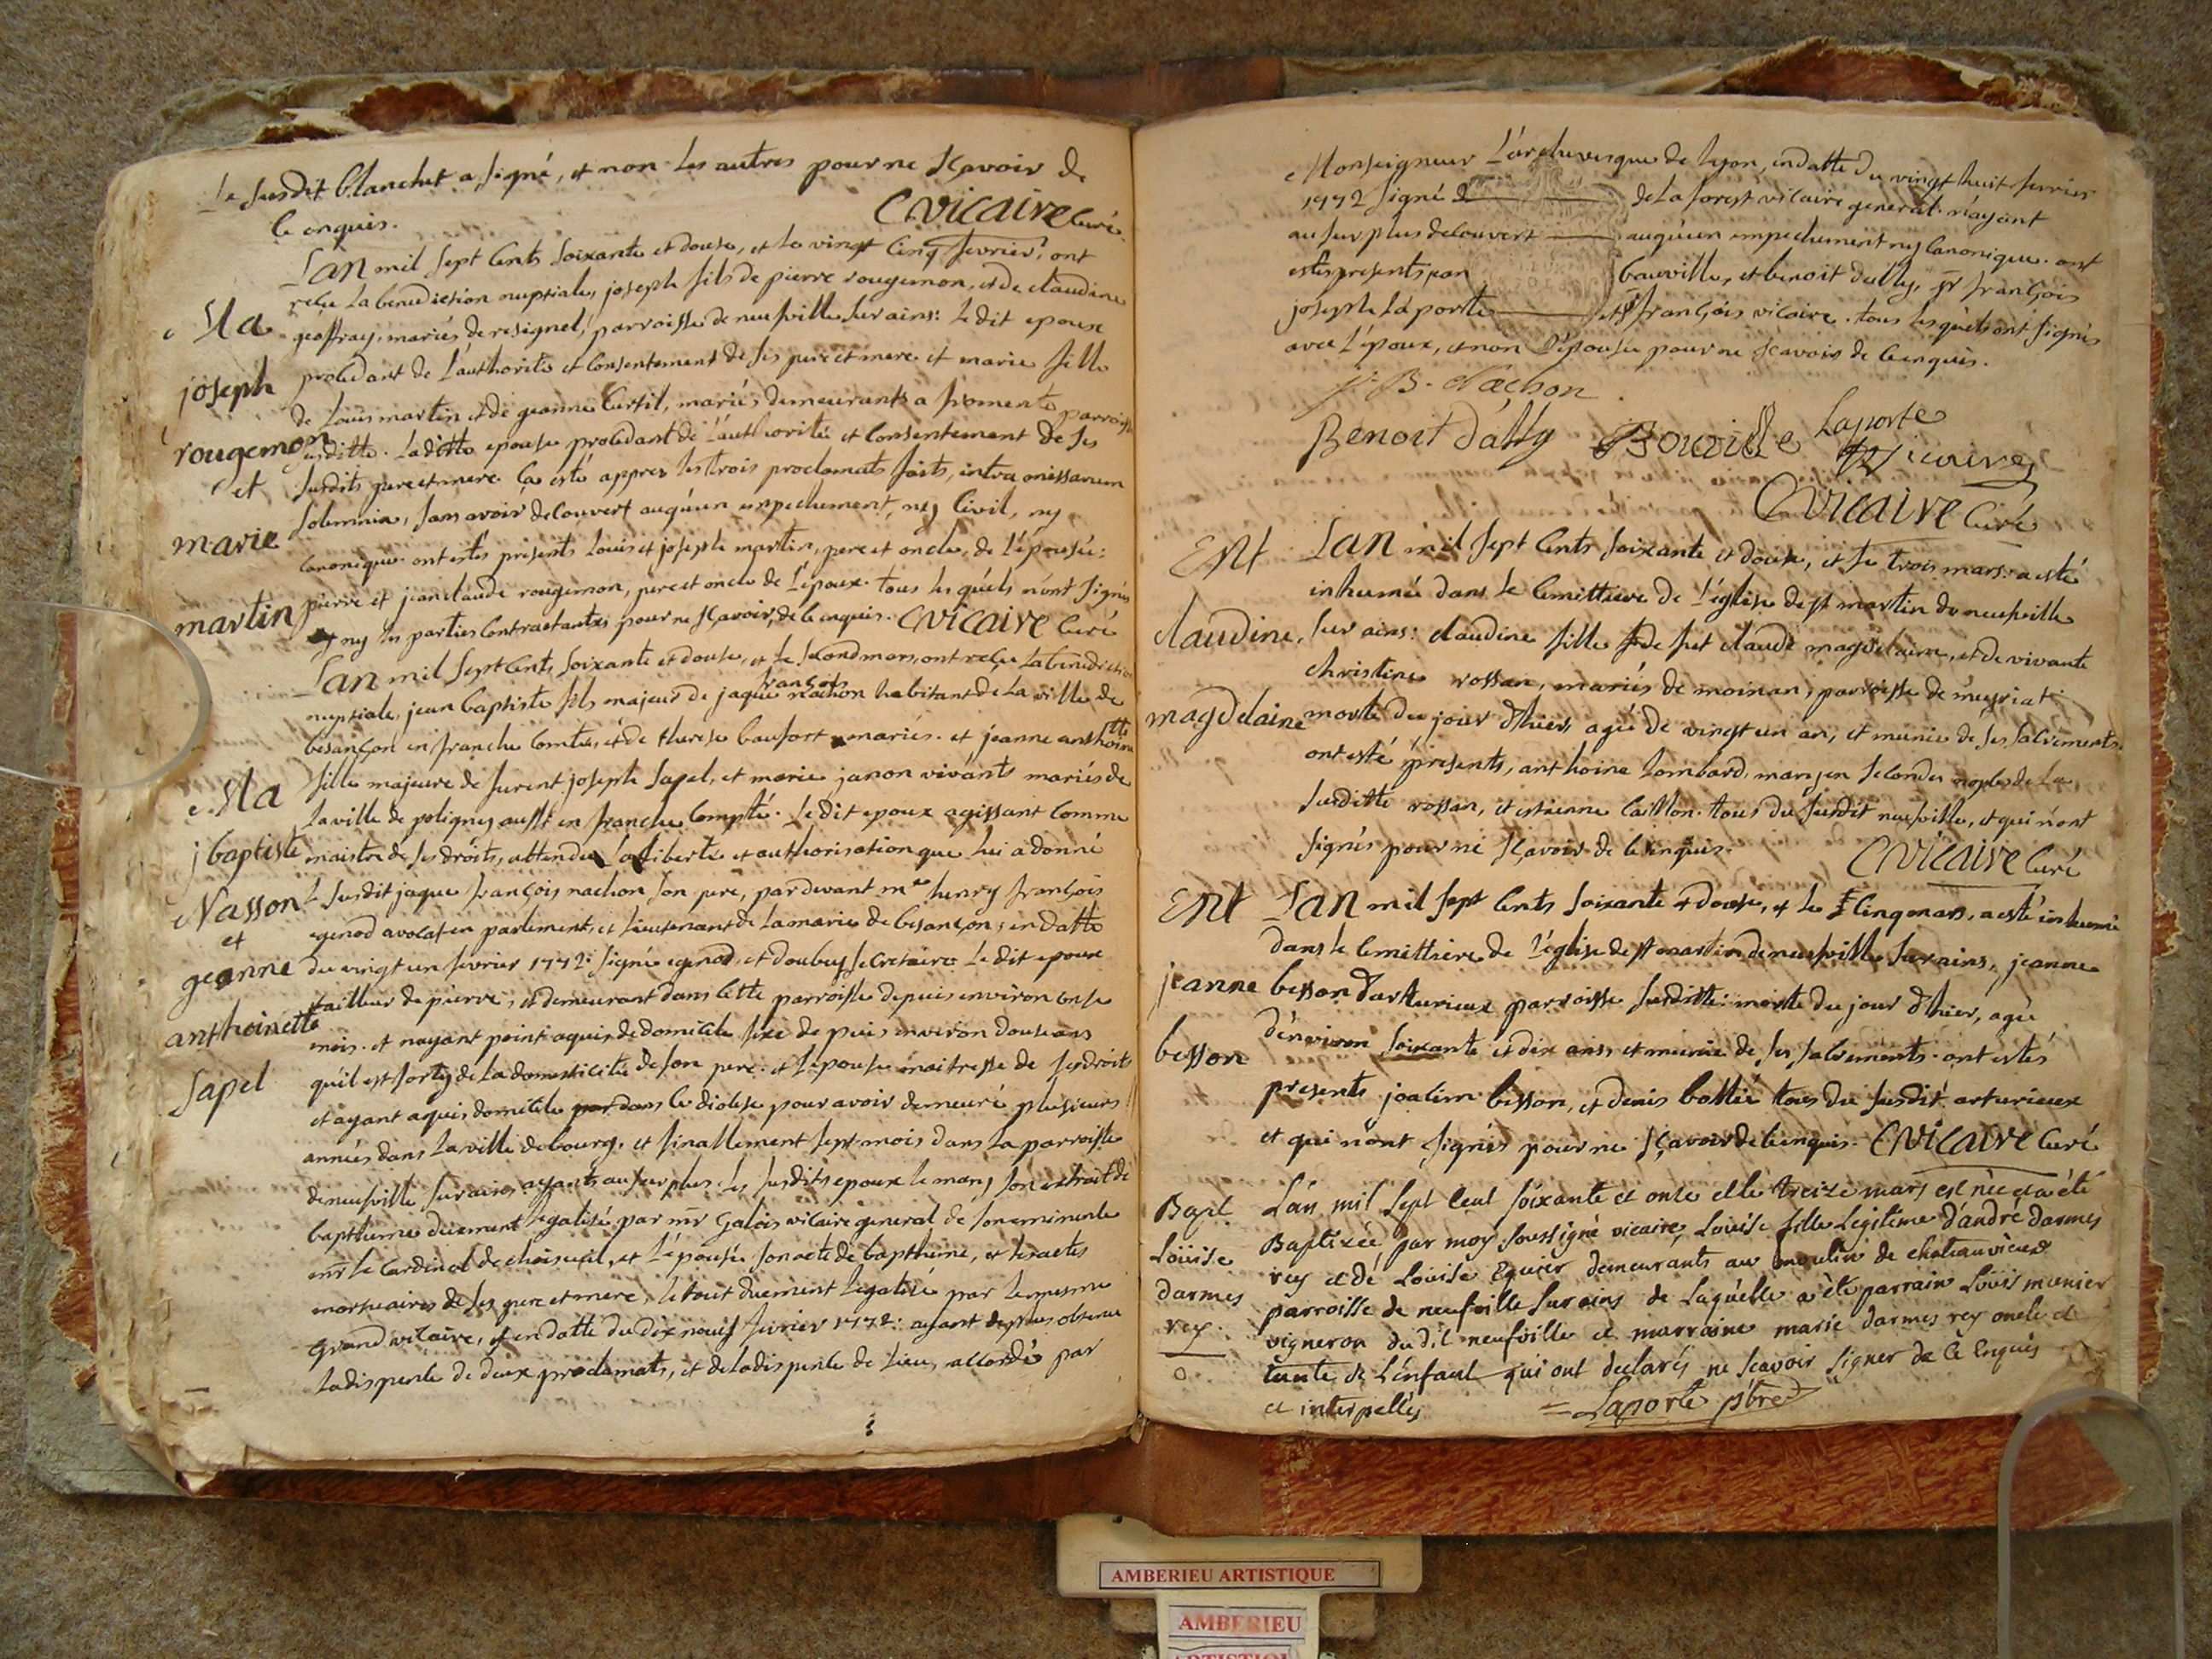 Le susdit blanchet a signé, et non les autres pour ne sçavoir de
ce enquis. Cvicaire Curé
Lan mil sept cents soixante et douse, et le vingt cinq fevrier, ont
reçu la benediction nuptiale, joseph fils de pierre rougemon, et de claudine
geoffray, mariés de resignel, parroisse de neufville sur ains: le dit epoux
Ma
procedant de l'authorité et consentement de ses pere et mere et marie fille
joseph
de Louis martin et de jeanne Curtil, mariés demeurants a fromente parroisse
rougemon
susditte. Laditte epouse procedant de l'authorité et consentement de ses
et
susdits pere et mere. Ça esté appres les trois proclamats faits, intra missarum
solemnia, sans avoir decouvert auqu'un empechement, ny Civil, ny
marie
canonique. ont estes presents Louis et joseph martin, pere et oncle, de l'épouse:
pierre et jean claude rougemon, pere et oncle de l'époux. tous lesquels n'ont signés
martin
ny les parties contractantes pour ne sçavoir, de ce enquis. Cvicaire Curé
Lan mil sept cents soixante et douse, et le second mars, ont reçu la benediction
françois
nuptiale, jean baptiste fils majeur de jaque nachon habitant de la ville de
besançon en franche comté, et de therese baufort mariés. et jeanne anthoinette
Ma
fille majeure de furent joseph sapel, et marie janon vivants mariés de
la ville de poligny aussi en franche compté. Le dit epoux agissant comme
j baptiste
maistre de ses droits, attendu la liberté et authorisation que lui a donné
Nasson
Le susdit jaque françois nachon son pere, par devant mre henry françois
et
egenod avocat en parlement, et lieutenant de la marie de besançon, en datte
geanne
du vingt un fevrier 1772: signé egenod, et doubey secretaire. Le dit epoux
anthoinette
tailleur de pierre, et demeurant dans cette parroisse depuis environ onse
mois. et nayant point aquis de domicile fixe depuis environ douse ans
sapel
qu'il est sorty de la domesticité de son pere. et l'epouse maitresse de ses droits
et ayant aquis domicile dans ce diocese pour avoir demeuré plusieurs
années dans la ville de bourg. et finallement sept mois dans la parroisse
de neufville sur ains, ayants au surplus les susdits epoux le mary son extrait de
baptheme duement legalisé par mr Galois vicaire general de son eminence
mr le Cardinal de choiseul, et l'épouse son acte de baptheme, et les actes
mortuaires de ses pere et mere, le tout duement legalisé par le mesme
grand vicaire, et en datte du dix neuf fevrier 1772: ayant de plus obtenu
la dispense de deux proclamats, et de la dispense de lieu, accordés par
Monseigneur L'archevesque de Lyon, en datte du vingt huit fevrier
1772 signé de la forest vicaire general. n'ayant
au surplus decouvert auqu'un empechement ny canonique. ont
estes presents jean bouville, et benoit dally, françois
joseph laporte françois vicaire. tous lesquels ont signés
avec l'époux, et non l'épouse pour ne sçavoir de ce enquis.
j. B. Nachon
Laporte
Benoit Dally Bouville vicaire
Cvicaire Curé
Ent
Lan mil sept cents soixante et douse, et le trois mars: a esté
inhumée dans le cemittiere de l'église de st martin de neufville
claudine
sur ains: claudine fille de fut claude magdelaine, et de vivante
christine rossan, mariés de moinan, parroisse de meyriat
magdelaine
morte du jour d'hier, agée de vingt un an, et munie de ses sacrements.
ont esté presents, anthoine lombard mary en secondes nopces de la
susditte rossan, et estienne caillon. tous du susdit neufville, et qui n'ont
signés pour ne sçavoir de ce enquis.
Cvicaire Curé
Ent
Lan mil sept cents soixante et douse, et le cinq mars, a esté inhumée
dans le cemittiere de l'église de st martin de neufville sur ains, jeanne
jeanne
besson d'arturieux parroisse susditte: morte du jour d'hier, agée
besson
d'environ soixante et dix ans et munie de ses sacrements. ont estés
presents joacim besson, et denis bollié tous du susdit arturieux
et qui n'ont signés pour ne sçavoir de ce enquis. Cvicaire Curé
Bapt
L'an mil sept cent soixante et onze et le treize mars est née et a été
Louise
Baptizée par moy soussigné vicaire, Louise fille legitime d'andré darmes
darmes
rey et de Louise Equier demeurants au moulin de chateauvieux
rey
parroisse de neufville sur ains de laquelle a été parrain Louis munier
vigneron du dit neufville et marraine marie darmes rey oncle et
tante de l'enfant qui ont declarés ne scavoir signer de ce enquis
et interpellés
Laporte pbre
AMBERIEU ARTISTIQUE
AMBERIEU
ARTISTIQUE